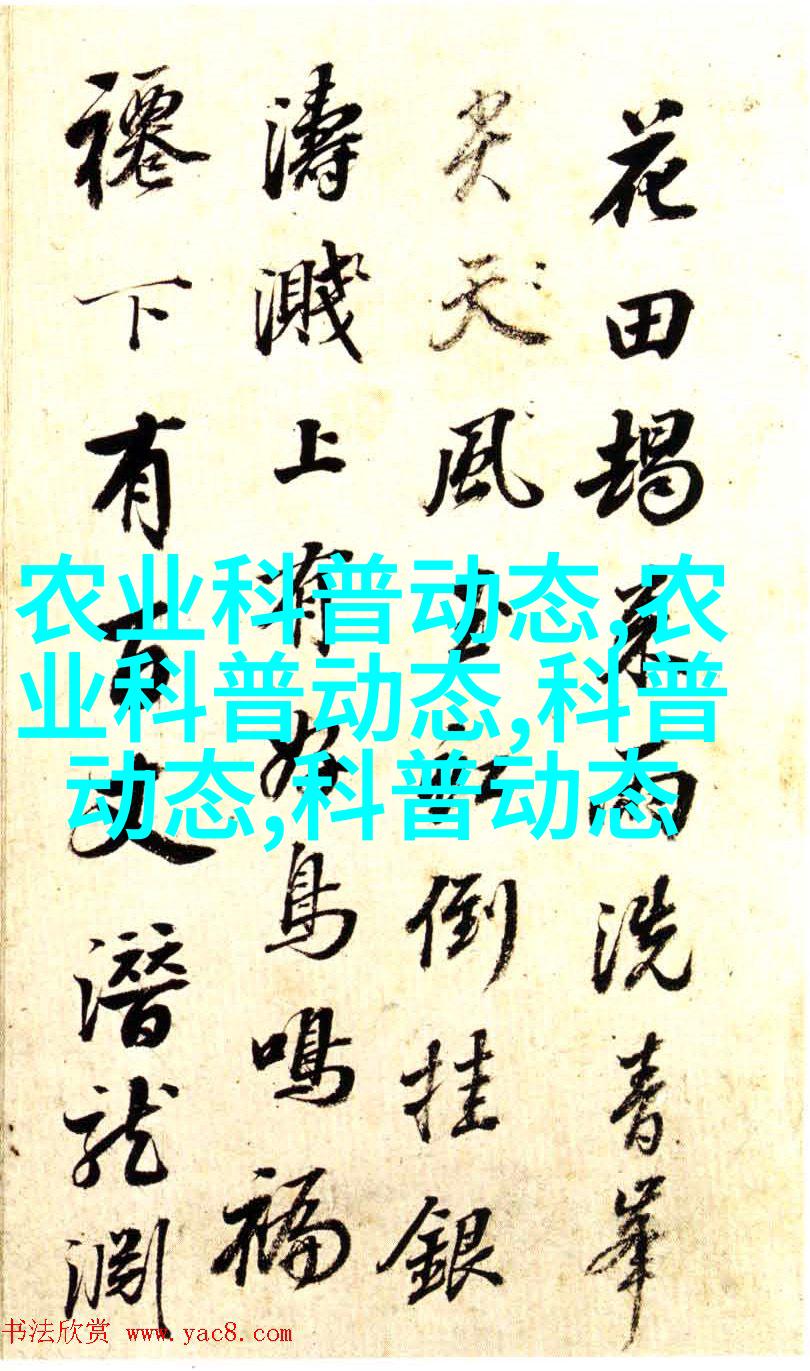 花田朅来雨洗青峯
尖天風玉虹倒挂銀
濤濺上有好鳥鳴福
下有百丈潛龍淵
农业科普动态,农
业科普动态,科普
动态,科普动态
书法欣赏 www.yac8.com